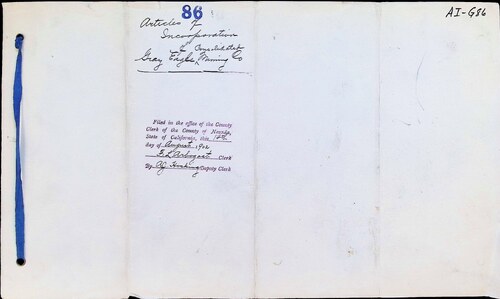 86
AI-G86
Articles of
Incorporation
Consolidated
Gray Eagle Mining Co
Filed in the office of the County
Clerk of the County of Nevada,
State of California, this 18th
day of August 1902
F. L. Arbogast Clerk
By Deputy Clerk